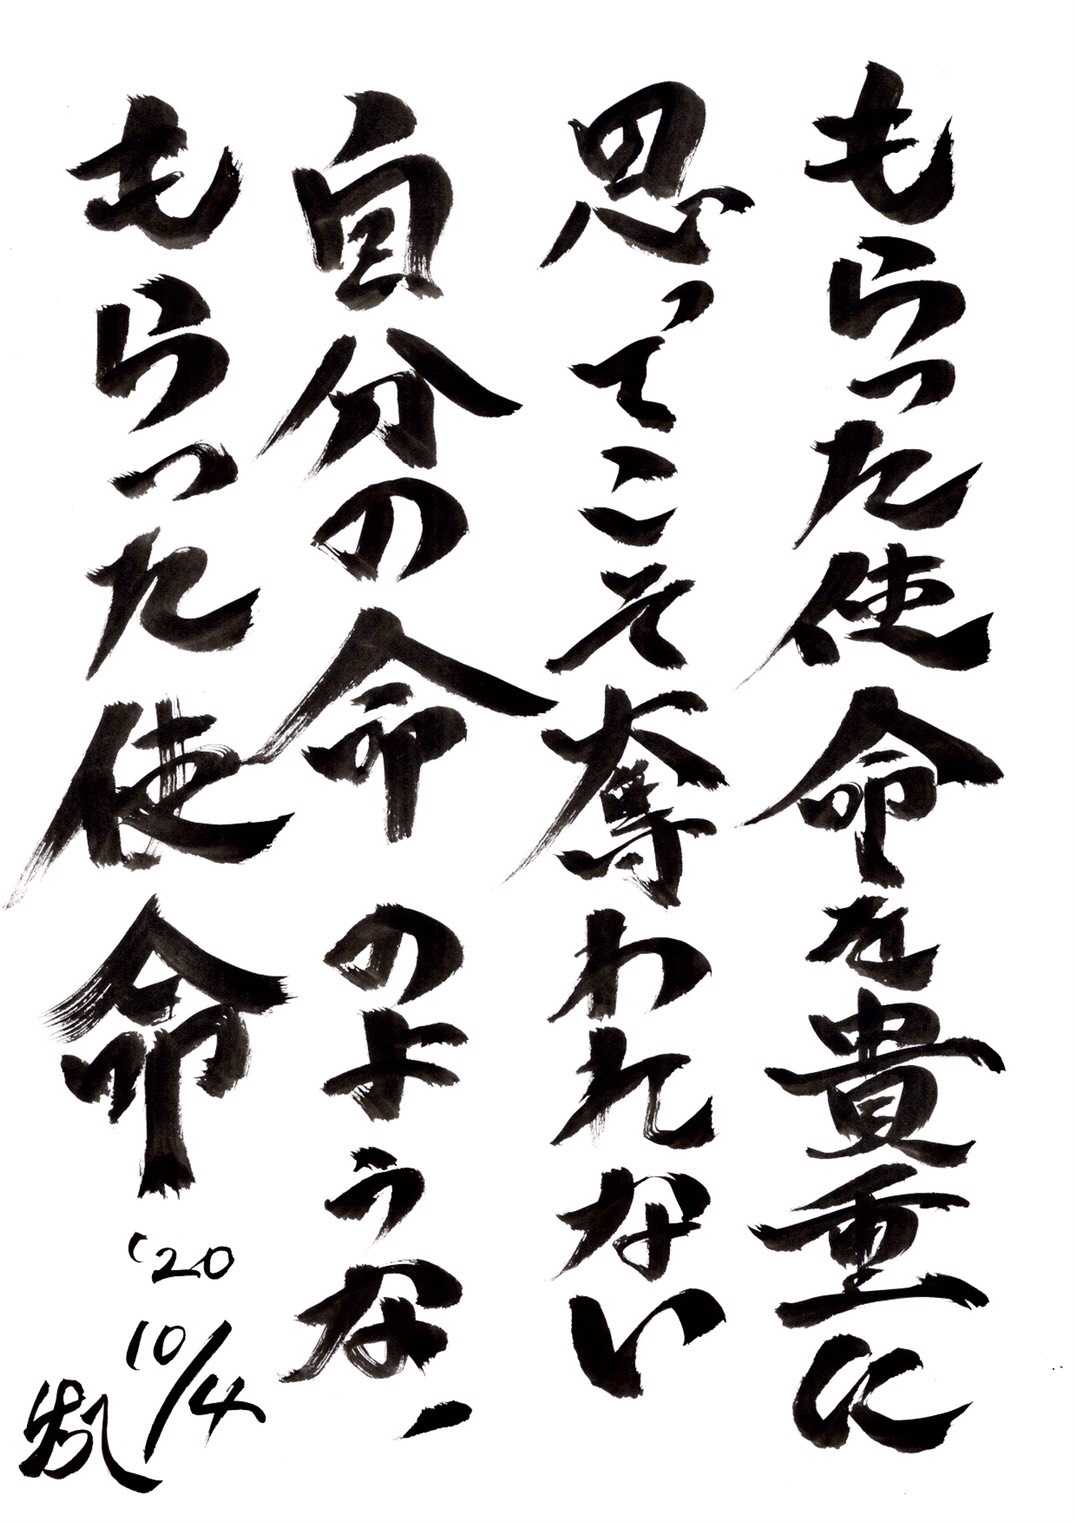 もらった使命を貴重に
思ってこそ奪われない
自分の命のような、
もらった使命
'20
10/4